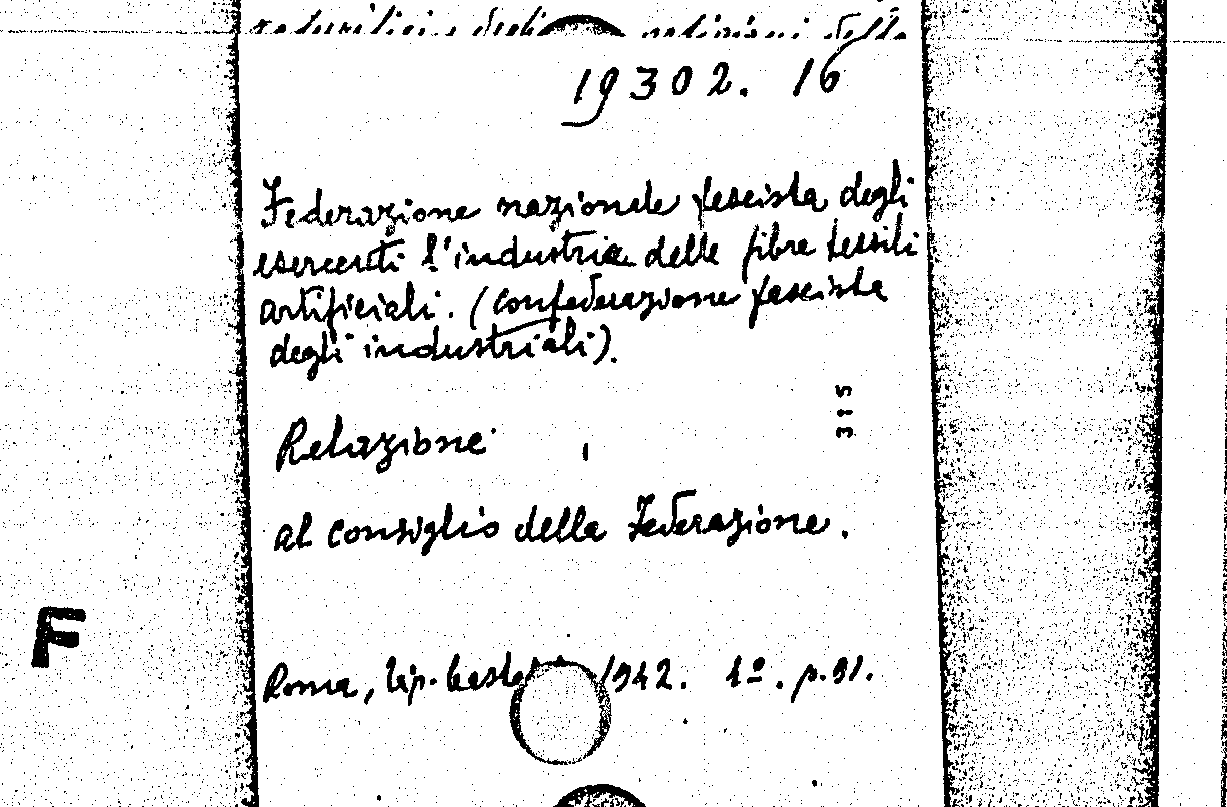 19302. 16
Federazione nazionale fascista degli
esercenti l'industria delle fibre tessili
artificiali. (Confederazione fascista
degli industriali).
315
Relazione
al consiglio della Federazione.
F
Roma, tip. 1942. 1º. p. 91.